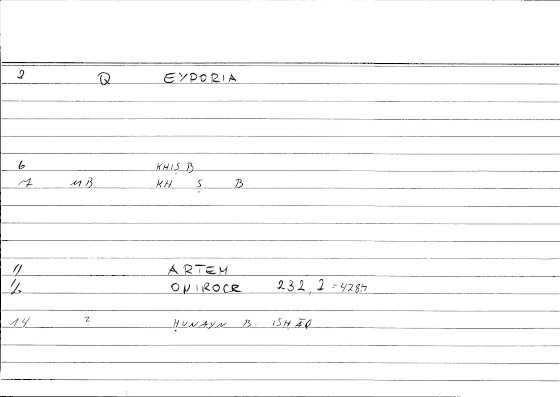 2 Q EYPORIA
6 KHIṢB
7 MB KH Ṣ B
11 ARTEM
12 ONIROCR 232, 2 = 428,7
14 2 ḤUNAYN B. ISḤĀQ